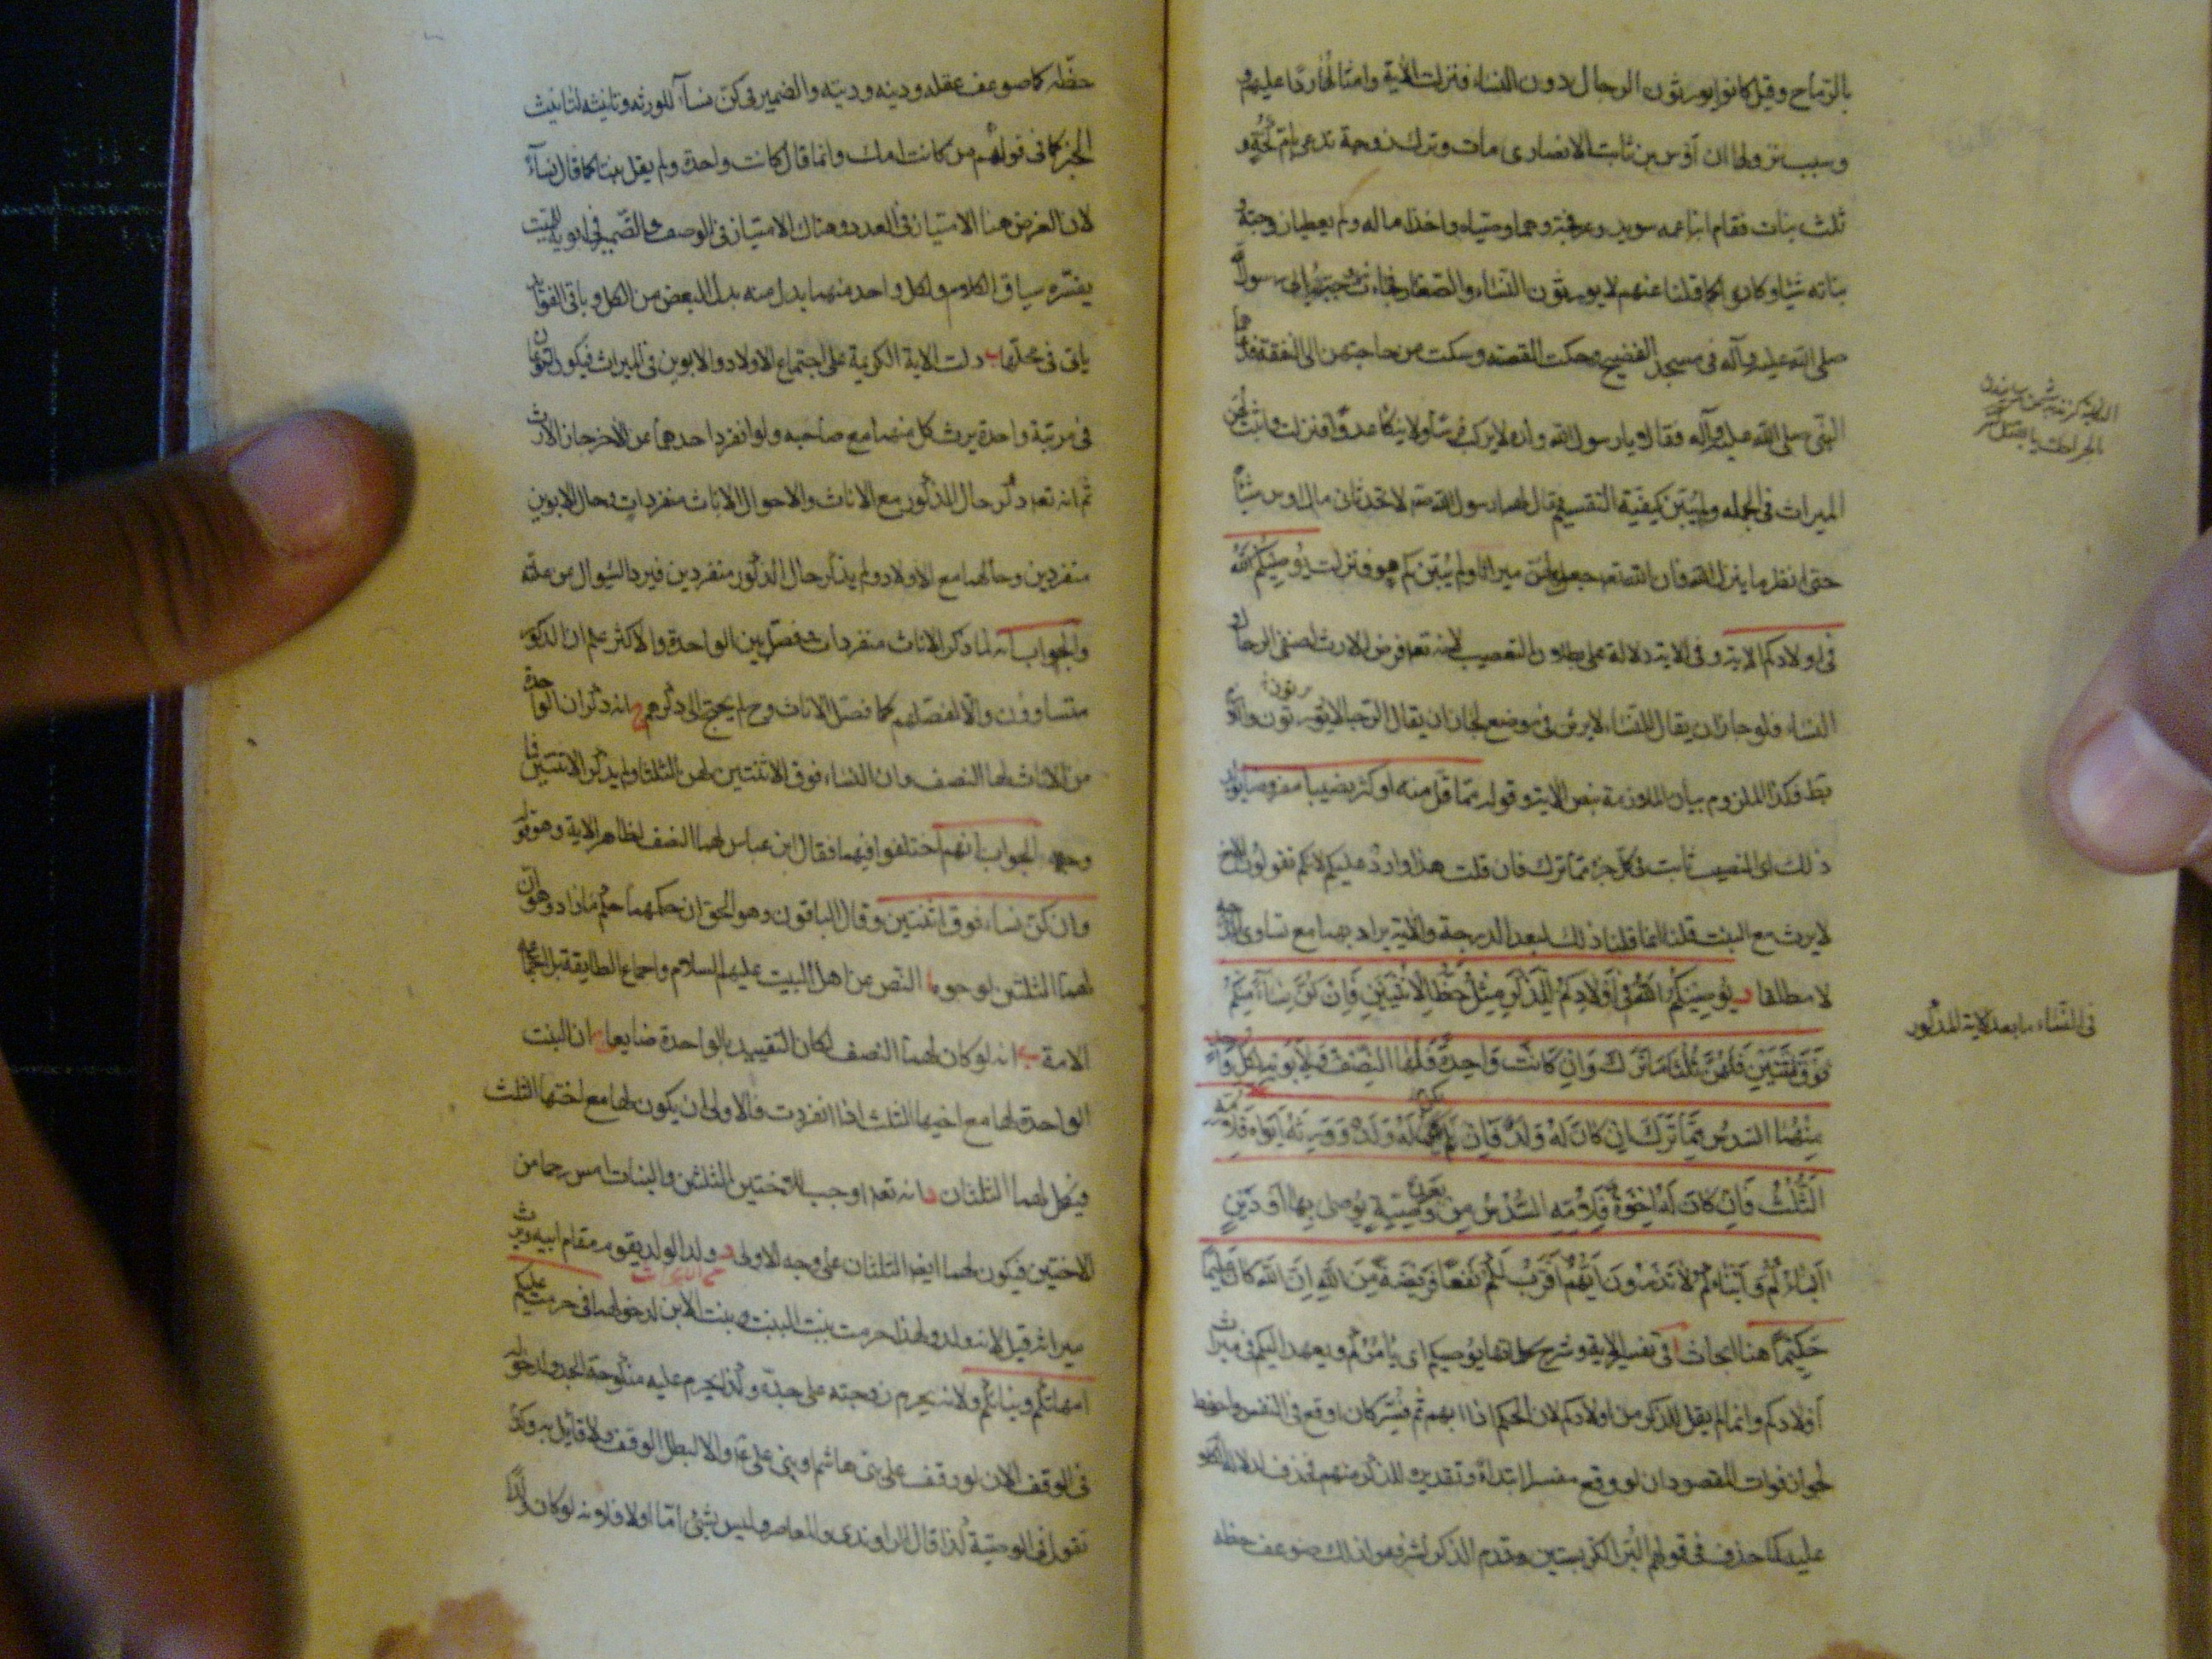 بالرماح وقيل كانوا يورثون الرجال دون النساء فنزلت الآية وامثالها ردا عليهم و
وسبب نزولها ان اوس بن ثابت الانصارى مات وترك زوجة تدعى بام كحة و
ثلث بنات فقام ابنا عمه سويد وعرفجة وهما وصياه واخذا ماله ولم يعطيا زوجته
بناته شيئا وكانوا كما قلنا عنهم لا يورثون النساء والصغار فجاءت زوجته الى رسول الله
صلى الله عليه وآله فى مسجد الفضيح وحكت القصة وسكت من حاجتهن الى النفقة فدعاهما
النبى صلى الله عليه وآله فقالا يا رسول الله ولده لا يركب فرسا ولا ينكأ عدوا فنزلت واثبت لهن
الميراث فى الجملة ولم يبين كيفية التقسيم فقال لهما رسول الله صه لا تحدثا فى مال اوس شيئا
حتى انظر ما ينزل الله فان الله تعه جعل لهن ميراثا ولم يبين كم هو فنزلت يوصيكم الله
فى اولادكم الاية وفى الاية دلالة على بطلان التعصيب لانه تعه فرض الارث لصنفى الرجال و
النساء فلو جاز ان يقال النساء لا يرثن فى موضع لجاز ان يقال الرجال لا يورثون واللازم
بط فكذا الملزوم بيان الملازمة بنص الاية وقوله مما قل منه او كثر نصيبا مفروضا يؤيد
ذلك اى النصيب ثابت فى كل جزء مما ترك فان قلت هذا وارد عليكم لانكم تقولون الاخ
لا يرث مع البنت قلنا انما قلنا ذلك لبعد الدرجة والاية يراد بهما مع تساوى الدرجة
لا مطلقا يوصيكم الله فى اولادكم للذكر مثل حظ الانثيين فان كن نساء منكم
فوق اثنتين فلهن ثلثا ما ترك وان كانت واحدة فلها النصف ولابويه لكل واحد
منهما السدس مما ترك ان كان له ولد فان لم يكن له ولد وورثه ابواه فلامه
الثلث فان كان له اخوة فلامه السدس من بعد وصية يوصى بها او دين
اباؤكم وابناؤكم لا تدرون ايهم اقرب لكم نفعا فريضة من الله ان الله كان عليما
حكيما هنا ابحاث ا فى تفسير الاية وشرح كلماتها يوصيكم اى يامركم ويعهد اليكم فى ميراث
اولادكم وانما لم يقل للذكر من اولادكم لان الحكم اذا ابهم ثم فسر كان اوقع فى النفس واحفظ
لجواز فوات المقصود ان لو وقع مفسرا ابتداء وتقديره للذكر منهم فحذف لدلالة
عليه كما حذف فى قولهم البر الكر بستين وقدم الذكر لشرفه ولذلك ضوعف حظه
فى النساء ما بعد لاية المذكور
حظه كما ضوعف عقله ودينه وديته والضمير فى كن نساء للورثه وتانيثه لتانيث
الخبر كما فى قولهم من كانت امك وانما قال كانت واحدة ولم يقل بنتا كما قال نساء
لان الغرض هنا الامتياز فى العدد وهناك الامتياز فى الوصف والضمير فى ابويه للميت
يفسره سياق الكلام ولكل واحد منهما بدل منه بدل البعض من الكل وباقى الفوائد
ياتى فى محلها ب دلت الاية الكريمة على اجتماع الاولاد والابوين فى الميراث فيكون
فى مرتبة واحدة يرث كل منهما مع صاحبه ولو انفرد احدهما عن الاخر حاز الارث
ثم انه تعه ذكر حال الذكور مع الاناث والاحوال الاناث منفردات وحال الابوين
منفردين وحالهما مع الاولاد ولم يذكر حال الذكور منفردين فيرد السؤال عن علته
والجواب انه لما ذكر الاناث منفردات وفصل بين الواحدة والاكثر علم ان الذكور
متساوون والا لفصلهم كما فصل الاناث وح لم يحتج الى ذكرهم ج انه ذكر ان الواحدة
من الاناث لها النصف وان النساء فوق الاثنتين لهن الثلثا ولم يذكر الاثنتين فما
وجهه الجواب انهم اختلفوا فيهما فقال ابن عباس لهما النصف لظاهر الاية وهو قوله
وان كن نساء فوق اثنتين وقال الباقون وهو الحق ان حكمهما حكم ما زاد وهو ان
لهما الثلثين لوجوه ا النص عن اهل البيت عليهم السلام واجماع الطايفة بل اجماع
الامة ب انه لو كان لهما النصف لكان التقييد بالواحدة ضايعا ج ان البنت
الواحدة لها مع اخيها الثلث اذا انفردت فالاولى ان يكون لها مع اختها الثلث
فيكمل لهما الثلثان د انه تعه اوجب للاختين الثلثين والبنات امس رحما من
الاختين فيكون لهما ايضا الثلثان على وجه الاولى د ولد الولد يقوم مقام ابيه ويرث
ميراثه قيل لانه ولد ولهذا حرمت بنت البنت وبنت الابن لدخولهما فى حرمت عليكم
امهاتكم وبناتكم ولانه يحرم زوجته على جده وكذا يحرم عليه منكوحة الجد ولدخوله
فى الوقف الان لو وقف على بنى هاشم او بنى على ع والا لبطل الوقف ولا قائل به وكذا
نقول فى الوصية كذا قال الراوندى والمعاصر وليس بشئ اما اولا فلانه لو كان ولدا